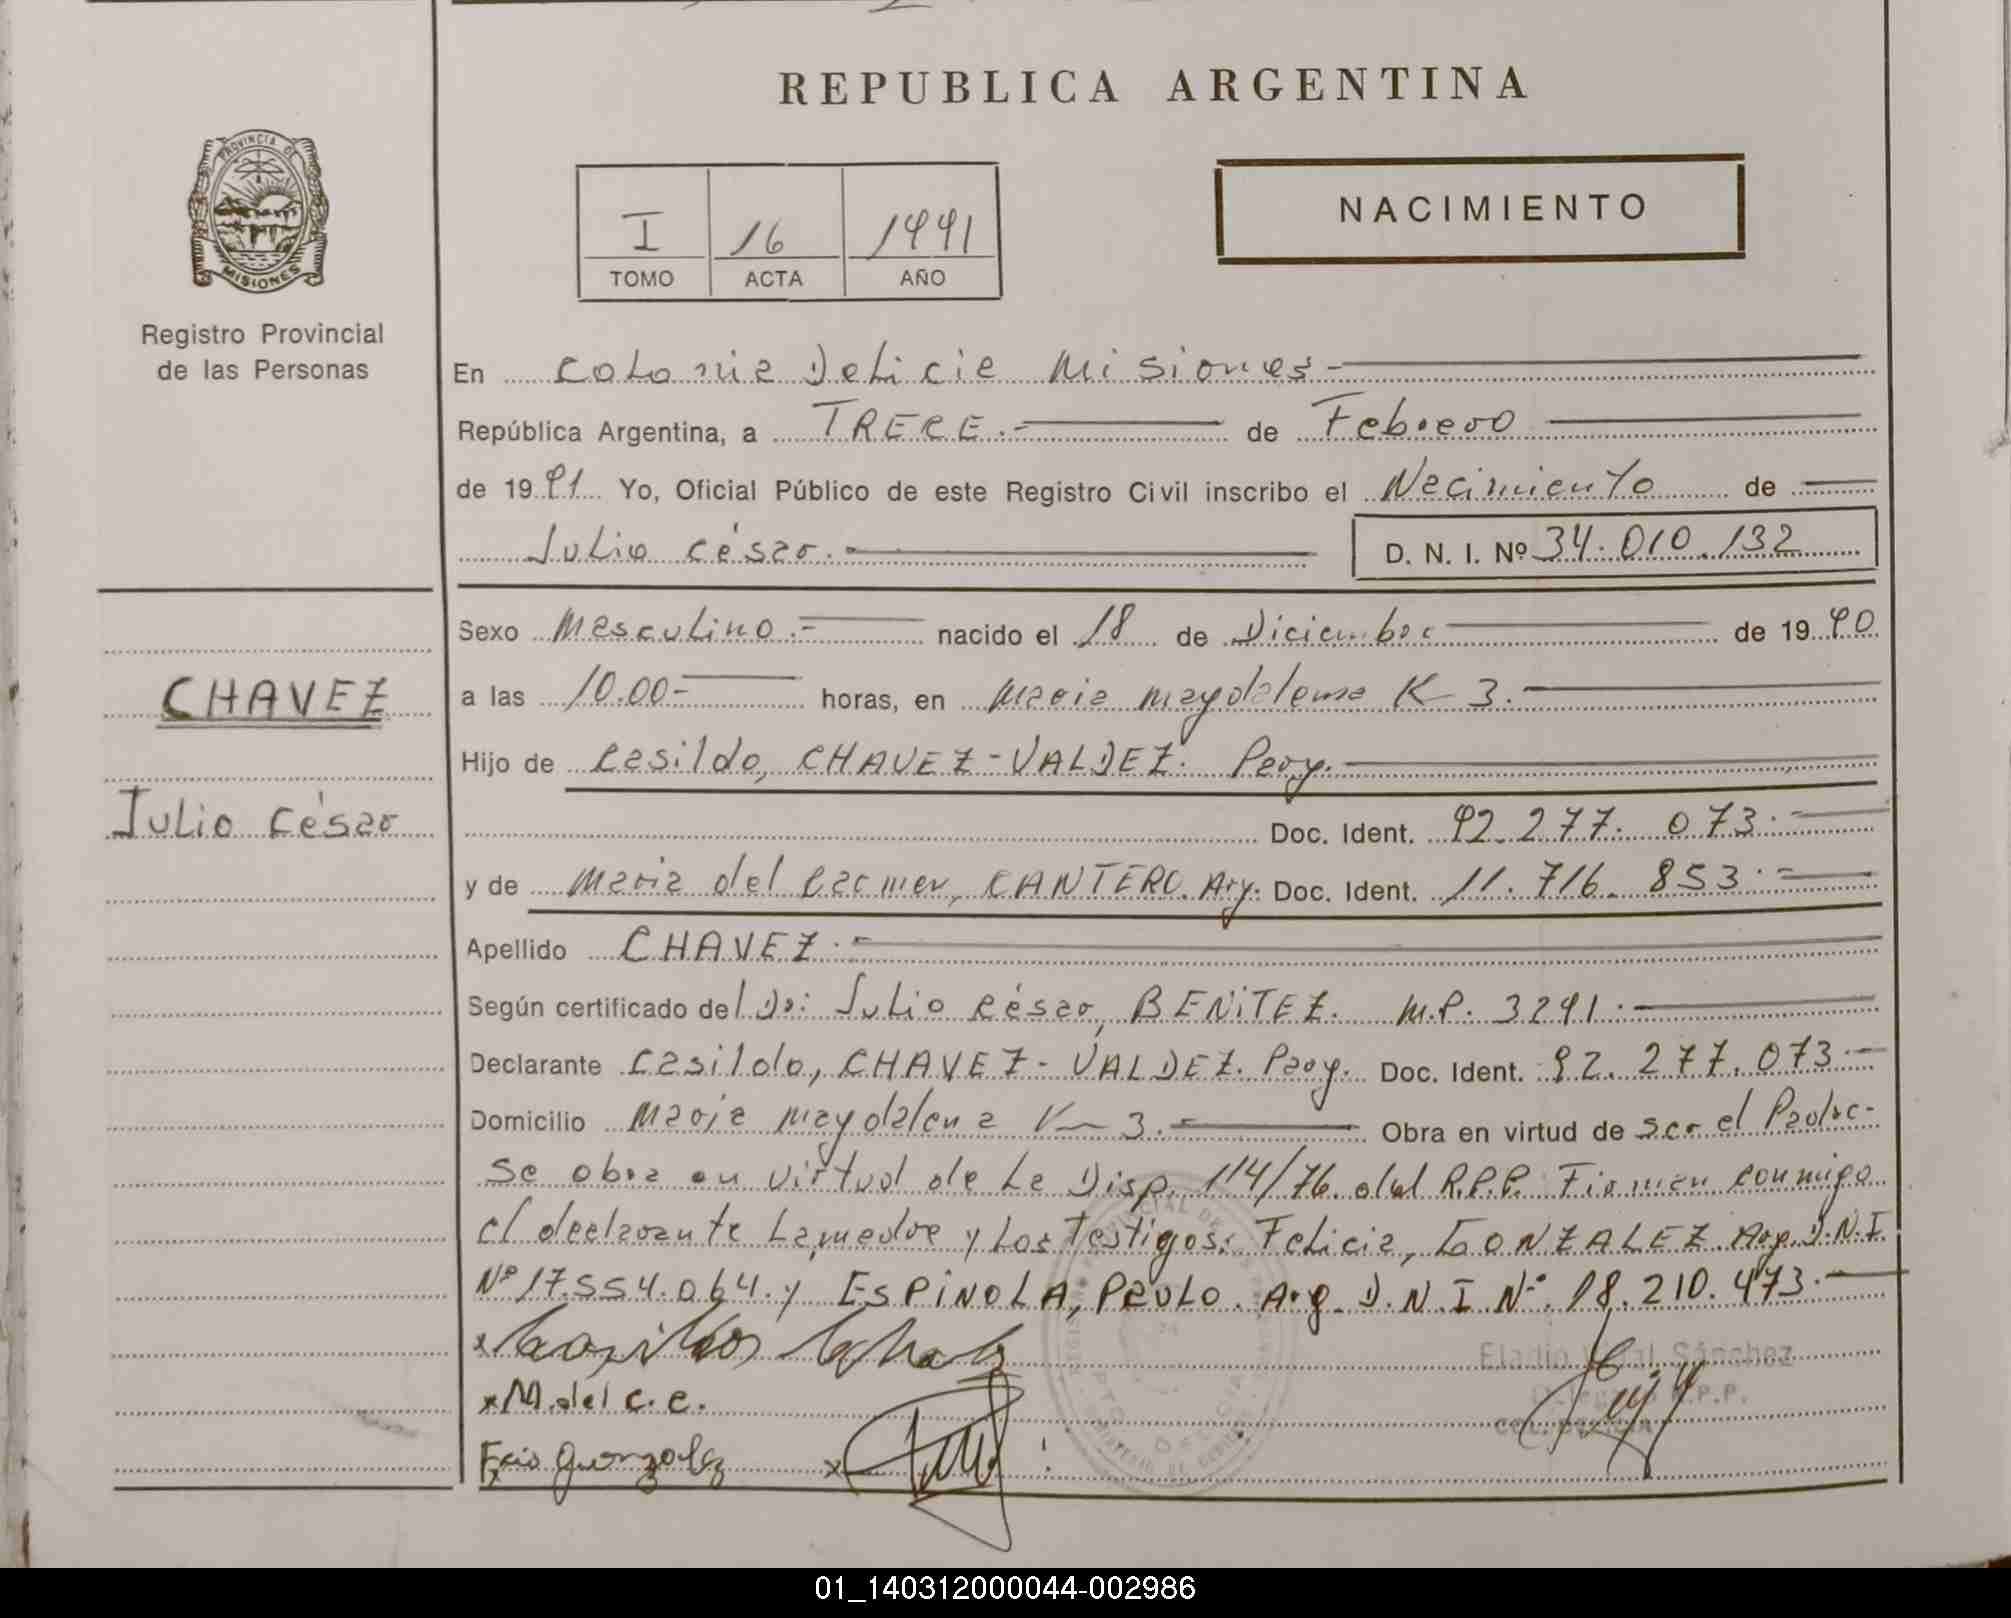 REPUBLICA ARGENTINA
PROVINCIA DE
MISIONES
Registro Provincial
de las Personas
I 16 1991
TOMO ACTA AÑO
NACIMIENTO
En Colonia Delicia Misiones.-
República Argentina, a TRECE.- de Febrero
de 1991 Yo, Oficial Público de este Registro Civil inscribo el Nacimiento de
Julio César.- D. N. I. Nº 34.010.132
Sexo Masculino.- nacido el 18 de Diciembre de 1990
CHAVEZ
a las 10.00- horas, en Maria magdalena K 3.-
Hijo de Casildo, CHAVEZ-VALDEZ. Parg.-
Julio César
Doc. Ident. 92.277.073.-
y de Maria del Carmen, CANTERO. Arg. Doc. Ident. 11.716.853.-
Apellido CHAVEZ.-
Según certificado del Dr: Julio César, BENITEZ. M.P. 3291.-
Declarante Casildo, CHAVEZ-VALDEZ. Parg. Doc. Ident. 92.277.073.-
Domicilio Maria magdalena K 3.- Obra en virtud de ser el Padre-
Se obra en virtud de La Disp. 114/76. del R.P.P. Firman conmigo
el declarante La madre y Los Testigos: Felicia, GONZALEZ. Arg. D.N.I.
Nº 17.554.064. y ESPINOLA, PAULO. Arg. D.N.I Nº. 18.210.473.-
x
Eladio Sánchez
x M. del C. C.
R.P.P.
COL. DELICIA
x
01_140312000044-002986